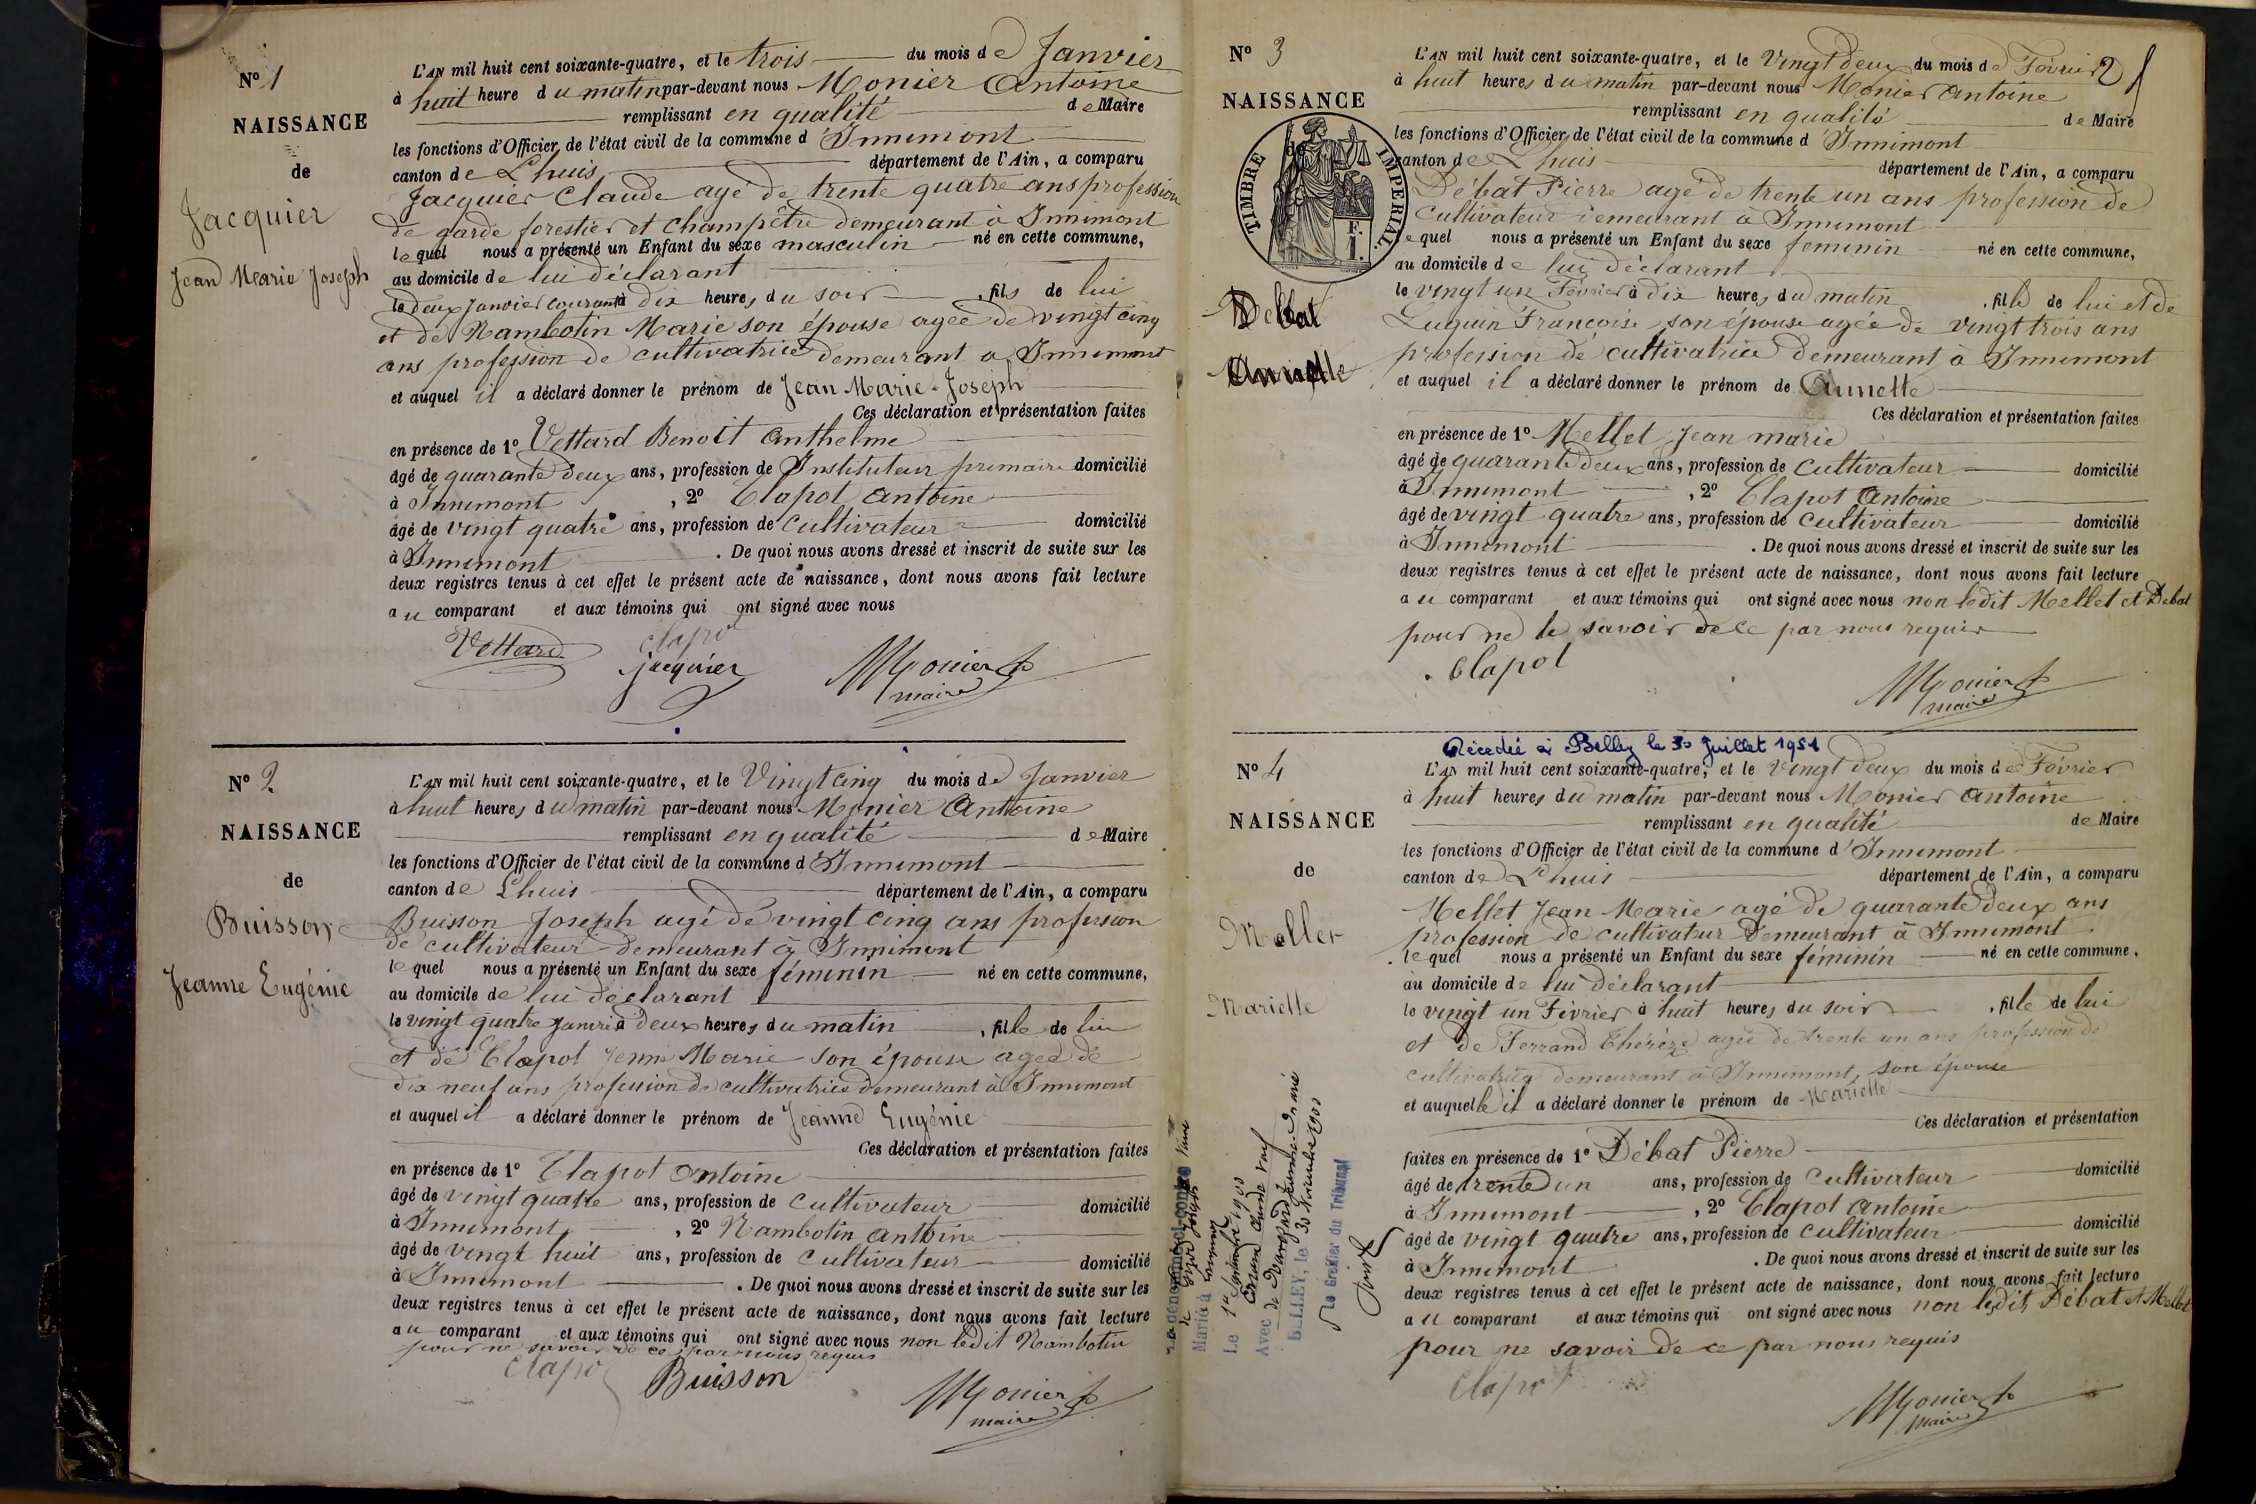 N° 1
NAISSANCE
de
Jacquier
Jean Marie Joseph
L'AN mil huit cent soixante-quatre, et le trois du mois de Janvier
à huit heure du matin par-devant nous Monier Antoine
remplissant en qualité de Maire
les fonctions d'Officier de l'état civil de la commune d'Innimont
canton de Lhuis département de l'Ain, a comparu
Jacquier Claude agé de trente quatre ans profession
de garde forestier et champêtre demeurant à Innimont
lequel nous a présenté un Enfant du sexe masculin né en cette commune,
au domicile de lui déclarant
le deux Janvier courant à dix heures du soir, fils de lui
et de Nambotin Marie son épouse agée de vingt cinq
ans profession de cultivatrice demeurant a Innimont
et auquel il a déclaré donner le prénom de Jean Marie-Joseph
Ces déclaration et présentation faites
en présence de 1° Vettard Benoit Anthelme
âgé de quarante deux ans, profession de Instituteur primaire domicilié
à Innimont, 2° Clapot Antoine
âgé de vingt quatre ans, profession de cultivateur domicilié
à Innimont. De quoi nous avons dressé et inscrit de suite sur les
deux registres tenus à cet effet le présent acte de naissance, dont nous avons fait lecture
au comparant et aux témoins qui ont signé avec nous
Vettard Clapot
jacquier Monier
maire
N° 2
NAISSANCE
de
Buisson
Jeanne Eugénie
L'AN mil huit cent soixante-quatre, et le Vingt cinq du mois de Janvier
à huit heures du matin par-devant nous Monier Antoine
remplissant en qualité de Maire
les fonctions d'Officier de l'état civil de la commune d'Innimont
canton de Lhuis département de l'Ain, a comparu
Buisson Joseph agé de vingt cinq ans profession
de cultivateur demeurant à Innimont
lequel nous a présenté un Enfant du sexe féminin né en cette commune,
au domicile de lui déclarant
le vingt quatre Janvier à deux heures du matin, fille de lui
et de Clapot Jenne Marie son épouse agée de
dix neuf ans profession de cultivatrice demeurant à Innimont
et auquel il a déclaré donner le prénom de Jeanne Eugénie
Ces déclaration et présentation faites
en présence de 1° Clapot Antoine
âgé de vingt quatre ans, profession de cultivateur domicilié
à Innimont, 2° Nambotin Antoine
âgé de vingt huit ans, profession de cultivateur domicilié
à Innimont. De quoi nous avons dressé et inscrit de suite sur les
deux registres tenus à cet effet le présent acte de naissance, dont nous avons fait lecture
au comparant et aux témoins qui ont signé avec nous non ledit Nambotin
pour ne savoir de ce par nous requis
Clapot Buisson
Monier
maire
N° 3
NAISSANCE
de
TIMBRE IMPERIAL
F.
1.
Debat
Annette
2
L'AN mil huit cent soixante-quatre, et le Vingt deux du mois de Février
à huit heures du matin par-devant nous Monier Antoine
remplissant en qualité de Maire
les fonctions d'Officier de l'état civil de la commune d'Innimont
canton de Lhuis département de l'Ain, a comparu
Débat Pierre agé de trente un ans profession de
cultivateur demeurant à Innimont
lequel nous a présenté un Enfant du sexe feminin né en cette commune,
au domicile de lui déclarant
le vingt un Février à dix heures du matin, fille de lui et de
Luquin Françoise son épouse agée de vingt trois ans
profession de cultivatrice demeurant à Innimont
et auquel il a déclaré donner le prénom de Annette
Ces déclaration et présentation faites
en présence de 1° Mellet Jean marie
âgé de quarante deux ans, profession de cultivateur domicilié
à Innimont, 2° Clapot Antoine
âgé de vingt quatre ans, profession de cultivateur domicilié
à Innimont. De quoi nous avons dressé et inscrit de suite sur les
deux registres tenus à cet effet le présent acte de naissance, dont nous avons fait lecture
au comparant et aux témoins qui ont signé avec nous non ledit Mellet et Debat
pour ne le savoir de ce par nous requis
Clapot
Monier
maire
Décédée à Belley le 30 Juillet 1951
N° 4
NAISSANCE
de
Mellet
Marielle
L'AN mil huit cent soixante-quatre, et le vingt deux du mois de Février
à huit heures du matin par-devant nous Monier Antoine
remplissant en qualité de Maire
les fonctions d'Officier de l'état civil de la commune d'Innimont
canton de Lhuis département de l'Ain, a comparu
Mellet Jean Marie agé de quarante deux ans
profession de cultivateur demeurant à Innimont
lequel nous a présenté un Enfant du sexe féminin né en cette commune,
au domicile de lui déclarant
le vingt un Février à huit heures du soir, fille de lui
et de Ferrand Thérèze agée de trente un ans profession de
cultivatrice demeurant à Innimont, son épouse
et auquelle il a déclaré donner le prénom de Marielle
Ces déclaration et présentation
faites en présence de 1° Débat Pierre
âgé de trente un ans, profession de cultivateur domicilié
à Innimont, 2° Clapot Antoine
âgé de vingt quatre ans, profession de cultivateur domicilié
à Innimont. De quoi nous avons dressé et inscrit de suite sur les
deux registres tenus à cet effet le présent acte de naissance, dont nous avons fait lecture
au comparant et aux témoins qui ont signé avec nous non ledit Débat et Mellet
pour ne savoir de ce par nous requis
Clapot
Monier
maire
Marié à
Avec
BELLEY, le 30 Novembre 1903
Le Greffier du Tribunal